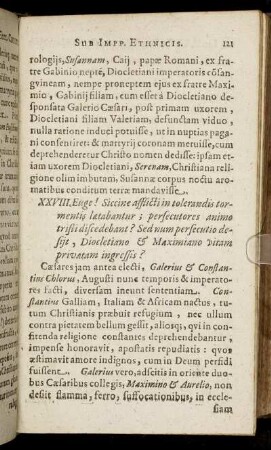 SUB IMPP. ETHNICIS. 121
rologijs, Susannam, Caij, papæ Romani, ex fra-
tre Gabinio nepte, Diocletiani imperatoris cõsan-
guineam, nempe proneptem ejus ex fratre Maxi-
mio, Gabinij filiam, cum esset à Diocletiano de-
sponsata Galerio Cæsari, post primam uxorem,
Diocletiani filiam Valeriam, defunctam viduo,
nulla ratione induci potuisse, ut in nuptias paga-
ni consentiret: & martyrij coronam meruisse, cum
deprehenderetur Christo nomen dedisse: ipsam et-
iam uxorem Diocletiani, Serenam, Christiana reli-
gione olim imbutam, Susannæ corpus noctu aro-
matibus conditum terræ mandavisse.
XXVIII. Euge! Siccine afflicti in tolerandis tor-
mentis lætabantur: persecutores animo
tristi discedebant? Sed num persecutio de-
sijt, Diocletiano & Maximiano vitam
privatam ingressis?
Cæsares jam antea electi, Galerius & Constan-
tius Chlorus, Augusti nunc temporis & imperato-
res facti, diversam ineunt sententiam. Con-
stantius Galliam, Italiam & Africam nactus, tu-
tum Christianis præbuit refugium, nec ullum
contra pietatem bellum gessit, aliosq́; qui in con-
fitenda religione constantes deprehendebantur,
impense honoravit, apostatis repudiatis: quos
æstimavit amore indignos, cum in Deum perfidi
fuissent. Galerius vero, adscitis in oriente duo-
bus Cæsaribus collegis, Maximino & Aurelio, non
desiit flamma, ferro, suffocationibus, in eccle-
siam